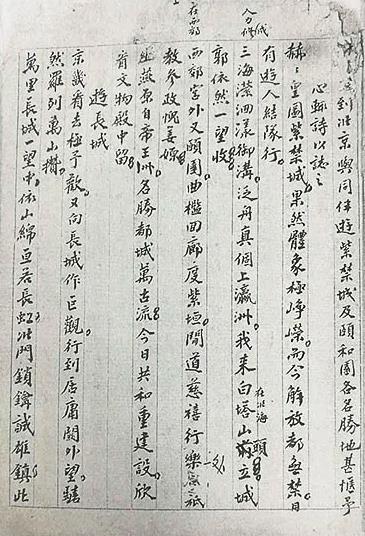 到北京與同伴遊紫禁城及頤和園各名勝地甚愜予
心詩以誌之
赫々皇圖紫禁城。果然體象極崢嶸。而今解放都無禁。日
有遊人結隊行。
三海瀠洄漾御溝。泛舟真個上瀛洲。我來白塔山頭立。城
在北海
郭依然一望收。
在西郊
西郊宮外又頤園。曲檻回廊度紫垣。聞道慈禧行樂處。祇
教參政愧姜嫄。
幽燕原自帝王州。名勝都城萬古流。今日共和重建設。欣
看文物殿中留。
遊長城
京畿看去極予歡。又向長城作巨觀。行到居庸關外望。驀
然羅列萬山攢。
萬里長城一望中。依山綿亘若長虹。北門鎖鑰誠雄鎮。此